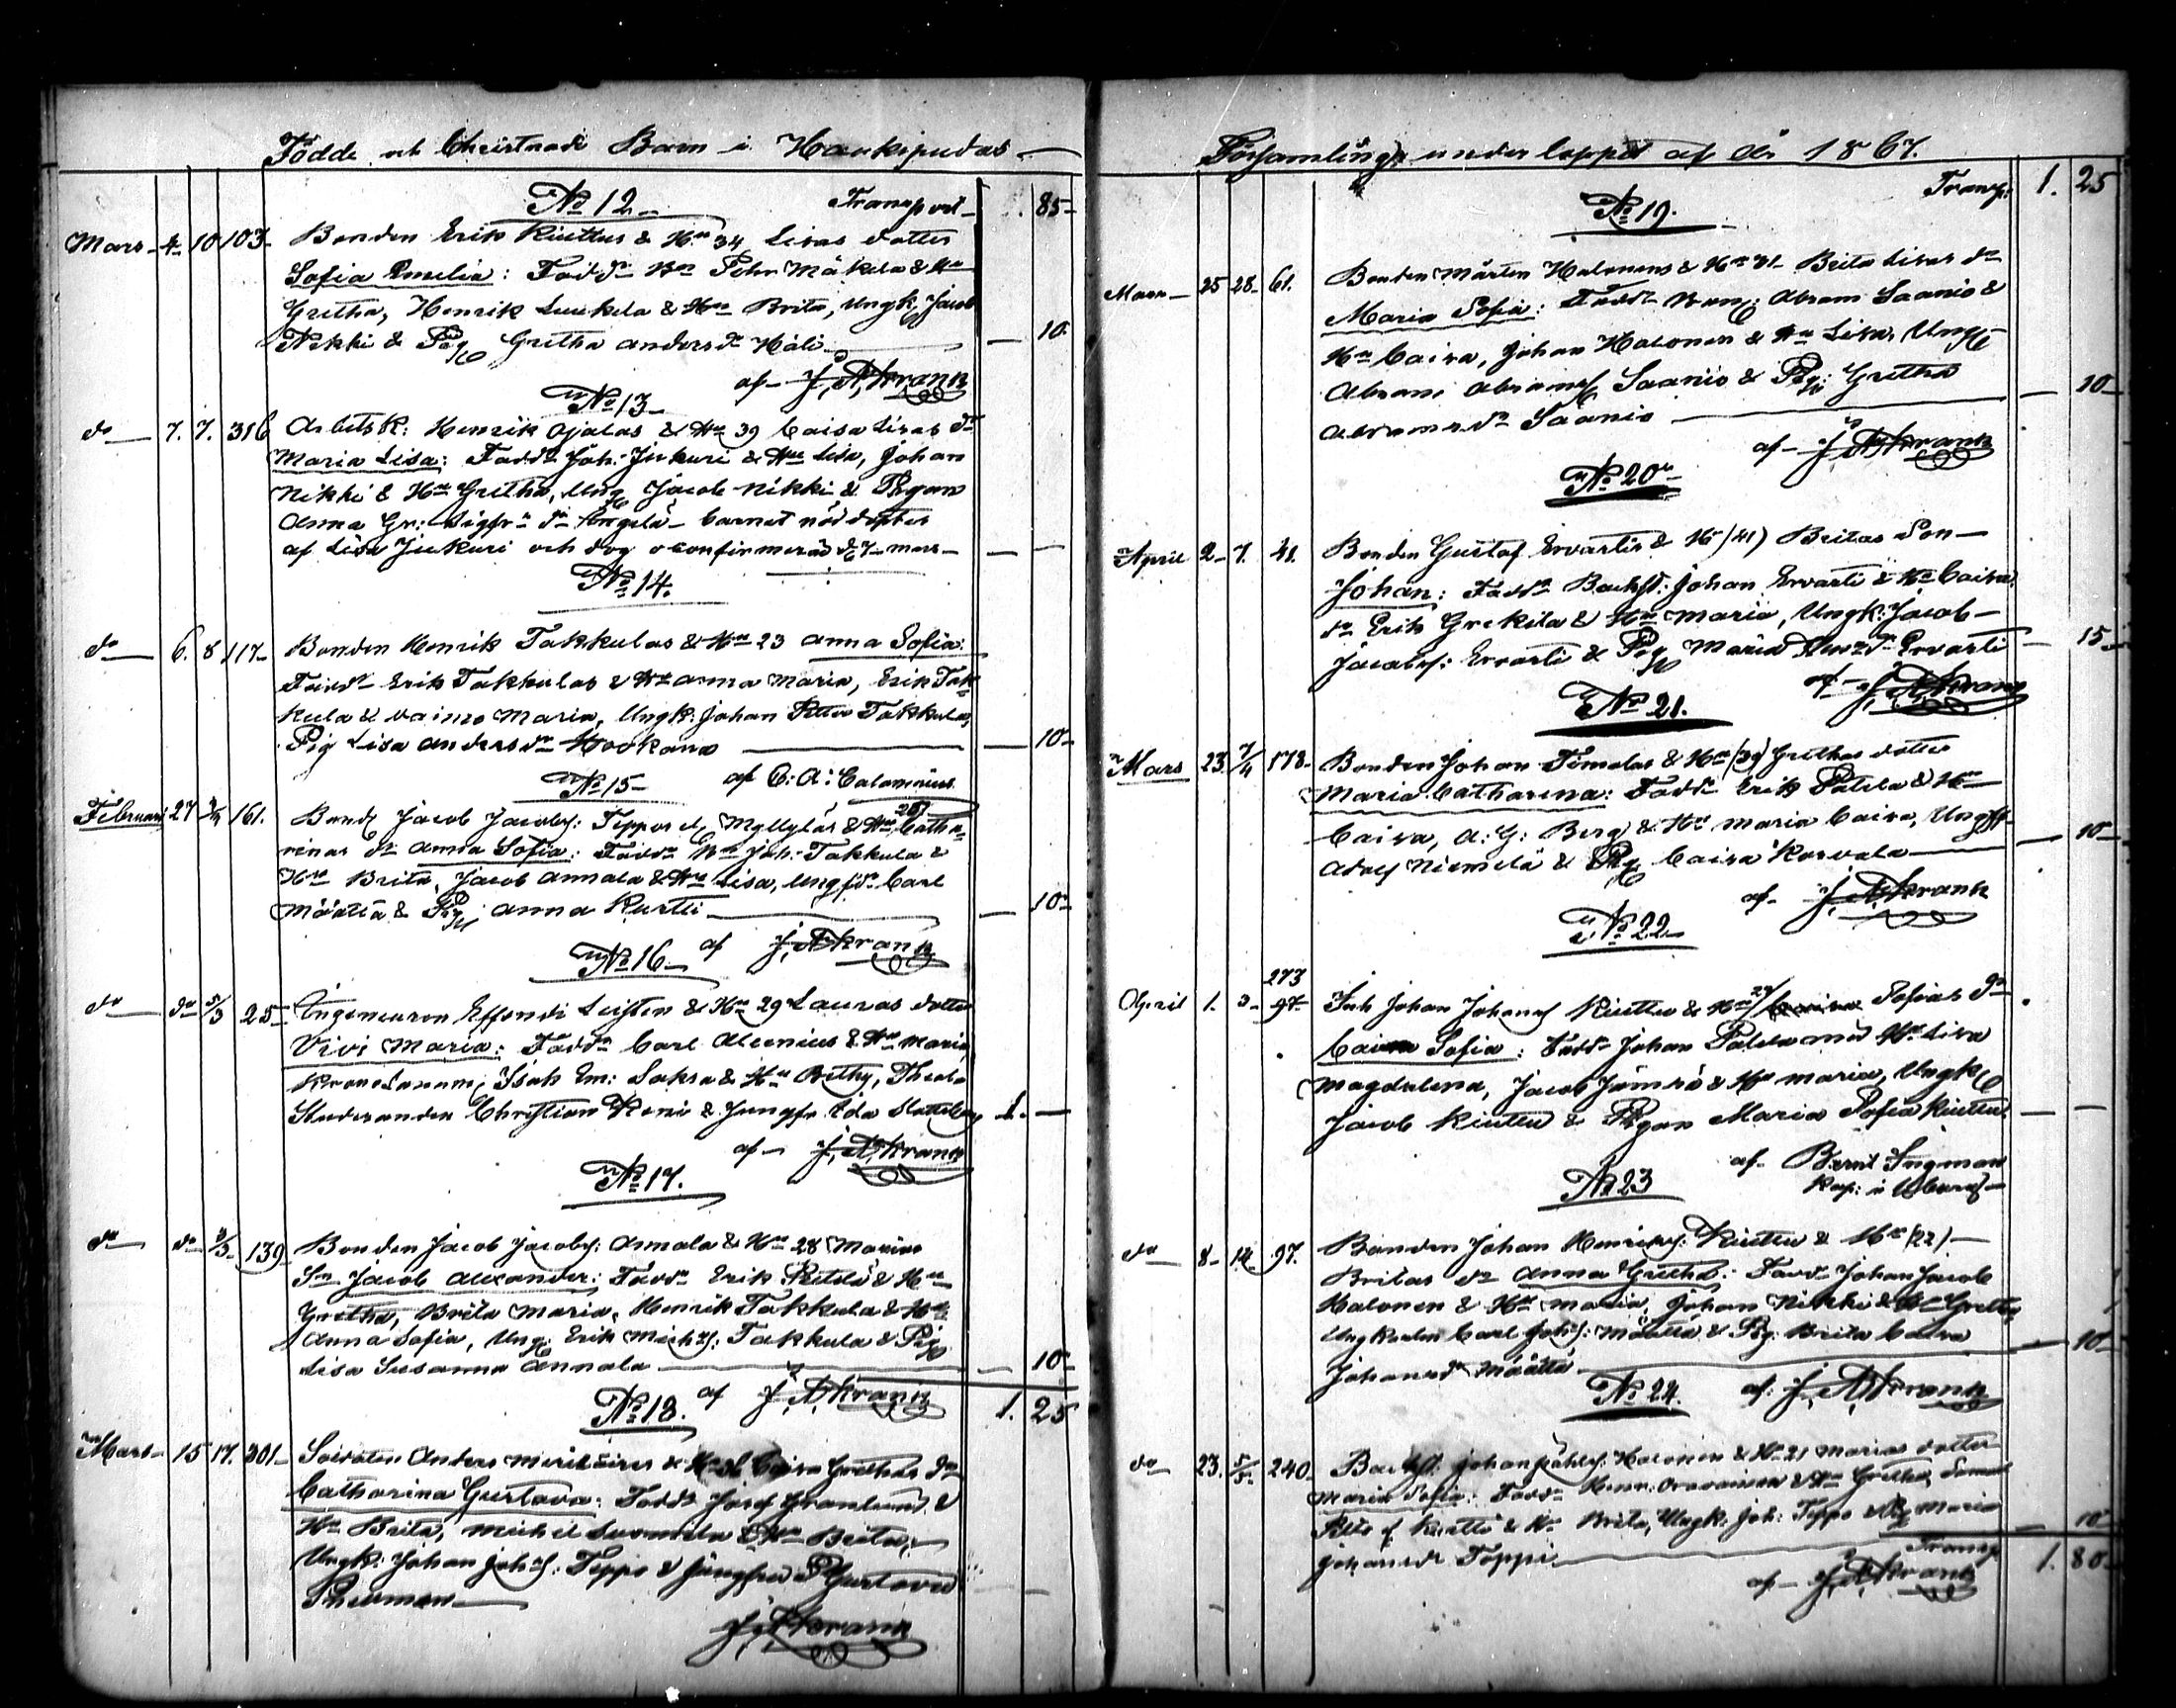 Födde och Christnade Barn i Haukipudas
No 12 Transport 85
Mars 4 10 103 Bonden Erik Kiuttus & Hu 34 Lisas dotter
Sofia Emelia: Faddr Bn Pehr Mäkelä & Hu
Gretha, Henrik Luukela & Hu Brita, Ungk. Jacob
Nikki & Pig Gretha Andersdr Häli 10
af J. A. Krank
No 13
do 7. 7. 316 Arbetsk: Henrik Ojalas & Hu 39 Caisa Lisas dr
Maria Lisa: Faddr Joh: Jukuri & Hu Lisa, Johan
Nikki & Hu Gretha, Ung Jacob Nikki & Pigan
Anna Gr: Sigfr: dr barnet nöddöptes
af Lisa Jukuri och dog d. 7 mars
No 14.
do 6. 8 117 Bonden Henrik Takkulas & Hu 23 Anna Sofia:
Faddr Erik Takkulas & Hu Anna Maria, Erik Tak
kula & Maria, Ungk: Johan Petter Takkula,
Pig Lisa Andersdr Hookana 10
No 15 af C: A: Calamnius
Februari 27 161. Bond Jacob Jacobs: Teppos el. Myllyläs & Hu 25) Catha
rinas dr Anna Sofia: Faddr Bn Joh: Takkula &
Hu Brita, Jacob Annala & Hu Lisa, Carl
Määttä & Pig Anna Kurtti 10
No 16 af J. A. Krank
do do 5/3 25 Ingeneuren Effendi & Hu 29 Lauras dotter
Vivi Maria: Faddr Carl & Hu Maria
Isak Em: & Hu Bethy, Theol.
Studeranden Christian & Jungfr Ida 1.
af J. A. Krank
No 17.
do do 3/3 139 Bonden Jacob Jacobs: Annala & Hu 28 Marias
Sn Jacob Alexander: Faddr Erik & Hu
Gretha, Brita Maria, Henrik Takkula & Hu
Anna Sofia, Ung: Erik Michs: Takkula & Pig
Lisa Susanna Annala 10
No 18. af J. A. Krank 1. 25
Mars 15 17. 301 Soldaten Anders & Hu Caisa Grethas dr
Catharina Gustava: Faddr Josef Granlund &
Hu Brita, Michel & Hu Brita,
Ungk: Johan Johs: Teppo & Jungfru Gustava
J. A. Krank
Församling under loppet af år 1867.
Transp: 1. 25
No 19.
Mars 25 28 61. Bonden Mårten Halonens & Hu 31 Brita Lisas dr
Maria Sofia: Faddr Abram Saanio &
Hu Caisa, Johan Halonen & Hu Lisa, Ungk
Abram Abrams Saanio & Pig: Gretha
Abramsdr Saanio 10
af J. A. Krank
No 20
April 2 7. 41. Bonden Gustaf Ervastis & H /41) Britas Son
Johan: Faddr Backst: Johan Ervasti & Hu Caisa
dn Erik Grekilä & Hu Maria, Ungk: Jacob
Jacobs: Ervasti & Pig Maria dr Ervasti 15
af J. A. Krank
No 21.
Mars 23. 7/4 178 Bonden Johan & Hu (39) Grethas dotter
Maria Catharina: Faddr Erik & Hu
Caisa, A: G: Berg & Hu Maria Caisa, Ungk
Adolf Niemelä & Pig Caisa Korvala 10
af J. A. Krank
No 22
273
April 1. 3 97 Inh Johan Johans Kiuttu & Hu 24/ Sofias dr
Caisa Sofia: Faddr Johan med Hu Lisa
Magdalena, Jacob Jämsä & Hu Maria, Ungk
Jacob Kiuttu & Pigan Maria Sofia Kiuttu
af Bernt Ingman
Kap: i
No 23
do 8 14 97. Bonden Johan Henriks: Kiuttu & Hu (22)
Britas dr Anna Gretha: Faddr Johan Jacob
Halonen & Hu Maria, Johan Nikki & Hu Gretha
Ungkarlen Carl Johs: Määttä & Pig: Brita Caisa
Johansdr Määttä 10
No 24. af: J. A. Krank
do 23. 5/5. 240 Backst: Johan Halonen & Hu 21 Marias dotter
Maria Sofia: Faddr Henr. Oravainen & Hu Gretha,
& Hu Brita, Ungk: Joh: Teppo & Pig Maria
Johansdr Teppo 10
Transp 1. 80
af J. A. Krank